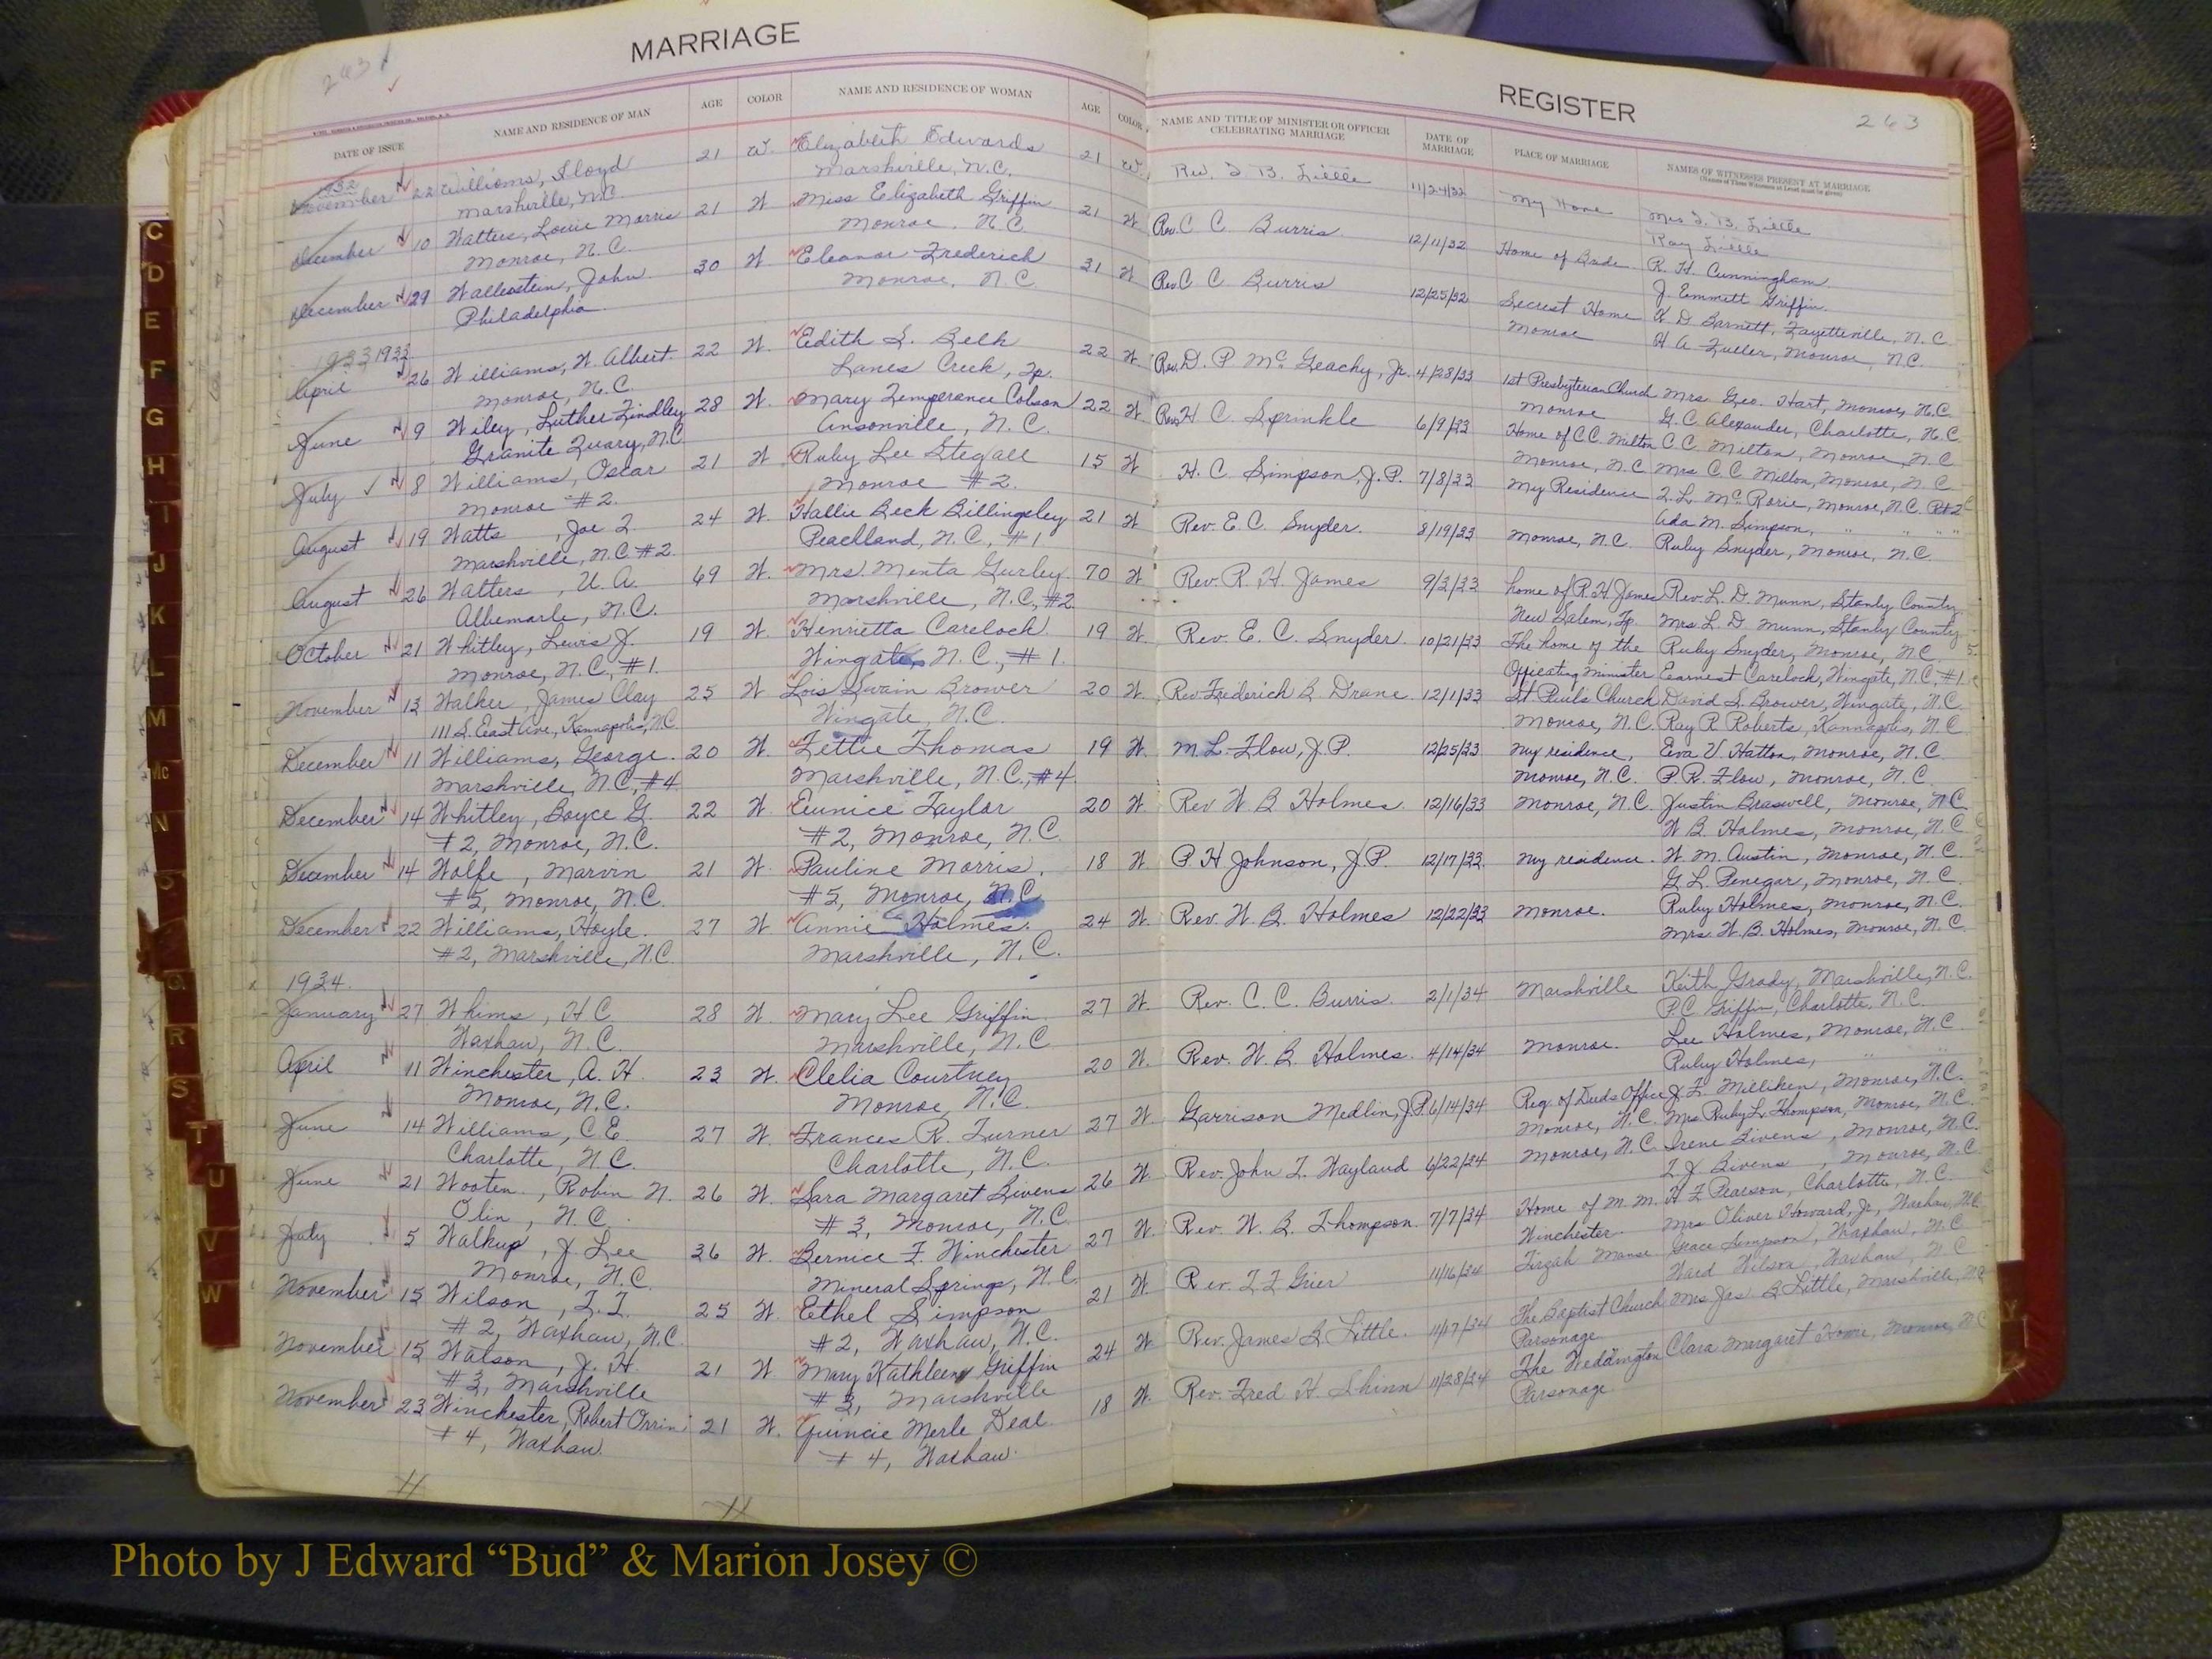 MARRIAGE
REGISTER
263
263
DATE OF ISSUE
NAME AND RESIDENCE OF MAN
AGE
COLOR
NAME AND RESIDENCE OF WOMAN
AGE
COLOR
NAME AND TITLE OF MINISTER OR OFFICER
CELEBRATING MARRIAGE
DATE OF
MARRIAGE
PLACE OF MARRIAGE
NAMES OF WITNESSES PRESENT AT MARRIAGE
1932
22 Williams, Lloyd 21 W. Elizabeth Edwards 21 W. Rev. J. B. Little 11/24/32 My Home Mrs J. B. Little
Marshville, N.C. Marshville, N.C. Ray Little
December 10 Watters, Louie Morris 21 W Miss Elizabeth Griffin 21 W Rev. C C Burris. 12/11/32 Home of Bride R. H. Cunningham
Monroe, N.C. Monroe, N C J. Emmett Griffin
December 29 Wallenstein, John 30 W Eleanor Frederich 31 W Rev C C Burris 12/25/32 Secrest Home W D Barnett, Fayetteville, N.C.
Philadelphia Monroe, N C Monroe H A Fuller, Monroe, N.C.
1933 1933
April 26 Williams, W. Albert 22 W. Edith S. Belk 22 W Rev. D. P. McGeachy, Jr. 4/28/33 1st Presbyterian Church Mrs. Geo. Hart, Monroe, N.C.
Monroe, N.C. Lanes Creek, Tp. Monroe G. C. Alexander, Charlotte, N.C.
June 9 Wiley, Luther Lindley 28 W. Mary Temperance Colson 22 W Rev H C Sprinkle 6/9/33 Home of C.C. Milton C.C. Milton, Monroe, N.C
Granite Quary, N.C. Ansonville, N.C. Monroe, N.C. Mrs C C Milton, Monroe, N.C
July 8 Williams, Oscar 21 W Ruby Lee Stegall 15 W H. C. Simpson, J.P. 7/8/33 My Residence T. L. McRorie, Monroe, N.C. Rt 2
Monroe #2. Monroe #2. Ada M. Simpson, " " "
August 19 Watts, Joe T. 24 W. Hallie Beck Billingsley 21 W Rev. E. C. Snyder. 8/19/33 Monroe, N.C. Ruby Snyder, Monroe, N.C
Marshville, N.C #2. Peachland, N.C., #1
August 26 Watters, U. A. 69 W. Mrs. Menta Gurley 70 W Rev. R. H. James 9/3/33 home of R. H James Rev. L. D. Munn, Stanly County
Albemarle, N.C. Marshville, N.C., #2 New Salem, Tp. Mrs. L. D Munn, Stanly County
October 21 Whitley, Lewis J. 19 W. Henrietta Carelock 19 W. Rev. E. C. Snyder. 10/21/33 The home of the Ruby Snyder, Monroe, N.C
Monroe, N.C., #1. Wingate, N.C., #1. Officating minister Earnest Carelock, Wingate, N.C., #1
November 13 Walker, James Clay 25 W Lois Swain Brower 20 W. Rev. Frederich B. Drane. 12/1/33 St. Paul's Church David S. Brower, Wingate, N.C.
111 S. East Ave, Kannapolis, N.C. Wingate, N.C. Monroe, N.C. Ray R Roberts, Kannapolis, N.C
December 11 Williams, George. 20 W. Lettie Thomas 19 W. M. L. Flow, J.P. 12/25/33 my residence, Eva V. Hatton, Monroe, N.C.
Marshville, N.C., #4 Marshville, N.C., #4 Monroe, N.C. P. R. Flow, Monroe, N.C.
December 14 Whitley, Boyce G. 22 W Eunice Taylor 20 W. Rev W. B Holmes. 12/16/33 Monroe, N.C. Justin Braswell, Monroe, N.C
#2, Monroe, N.C. #2, Monroe, N.C. W B. Holmes, Monroe, N.C
December 14 Wolfe, Marvin 21 W. Pauline Morris. 18 W P H Johnson, J.P. 12/17/33. my residence. W. M. Austin, Monroe, N.C.
#5, Monroe, N.C. #5, Monroe, N.C G. L. Penegar, Monroe, N.C.
December 22 Williams, Hoyle. 27 W Annie Holmes. 24 W. Rev. W. B. Holmes 12/22/33 Monroe. Ruby Holmes, Monroe, N.C.
#2, Marshville, N.C. Marshville, N.C. Mrs. W. B. Holmes, Monroe, N.C
1934.
January 27 Whims, H C 28 W. Mary Lee Griffin 27 W. Rev. C. C. Burris. 2/1/34 Marshville Keith Grady, Marshville, N.C.
Waxhaw, N.C. Marshville, N.C P.C. Griffin, Charlotte, N.C.
April 11 Winchester, A. H. 23 W. Clelia Courtney 20 W. Rev. W. B. Holmes. 4/14/34 Monroe. Lee Holmes, Monroe, N.C
Monroe, N.C. Monroe, N.C. Ruby Holmes, " "
June 14 Williams, C.E. 27 W. Frances R. Turner 27 W. Garrison Medlin, J.P. 6/14/34 Reg. of Deeds Office J. F. Milliken, Monroe, N.C.
Charlotte, N.C. Charlotte, N.C. Monroe, N.C. Mrs Ruby L. Thompson, Monroe, N.C.
June 21 Wooten, Robin N. 26 W. Sara Margaret Bivens 26 W. Rev. John T. Wayland 6/22/34 Monroe, N.C. Irene Bivens, Monroe, N.C.
Olin, N.C. #3, Monroe, N.C. T. J Bivens, Monroe, N.C
July 5 Walkup, J. Lee 36 W. Bernice F. Winchester 27 W. Rev. W. B. Thompson. 7/7/34 Home of M. M. H F Pearson, Charlotte, N.C.
Monroe, N.C. Mineral Springs, N.C. Winchester. Mrs Oliver Howard, Jr., Waxhaw, N.C.
November 15 Wilson, T. T. 25 W. Ethel Simpson 21 W. Rev. T. F Grier 11/16/34 Tirzah Manse Grace Simpson, Waxhaw, N.C
#2, Waxhaw, N.C. #2, Waxhaw, N.C. Ward Wilson, Waxhaw, N.C
November 15 Watson, J. H. 21 W Mary Kathleen Griffin 24 W Rev. James B. Little. 11/17/34 The Baptist Church Mrs Jas B Little, Marshville, N.C
#3, Marshville #3, Marshville Parsonage
November 23 Winchester, Robert Orrin 21 W. Quincie Merle Deal 18 W. Rev. Fred H. Shinn 11/28/34 The Weddington Clara Margaret Howie, Monroe, N.C
#4, Waxhaw #4, Waxhaw Parsonage
C
D
E
F
G
H
I
J
K
L
M
Mc
N
O
Q
R
S
T
U
V
W
Photo by J Edward “Bud” & Marion Josey ©